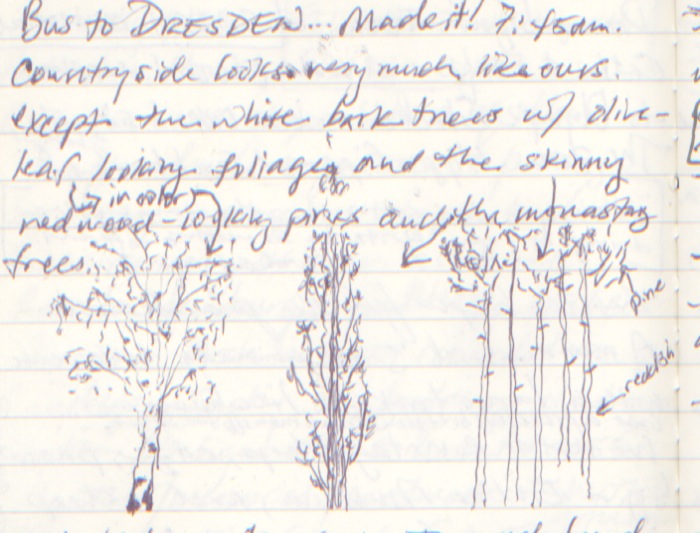 Bus to DRESDEN... Made it! 7:45am.
Countryside looks very much like ours.
except the white bark trees w/ olive-
leaf looking foliage and the skinny
(in color)
redwood-looking pines and the monastery
trees.
pine
reddish